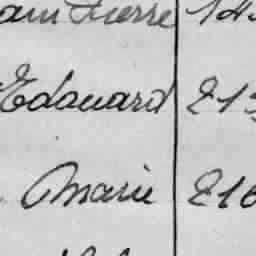 Pierre 14
Edouard 21
Marie 216